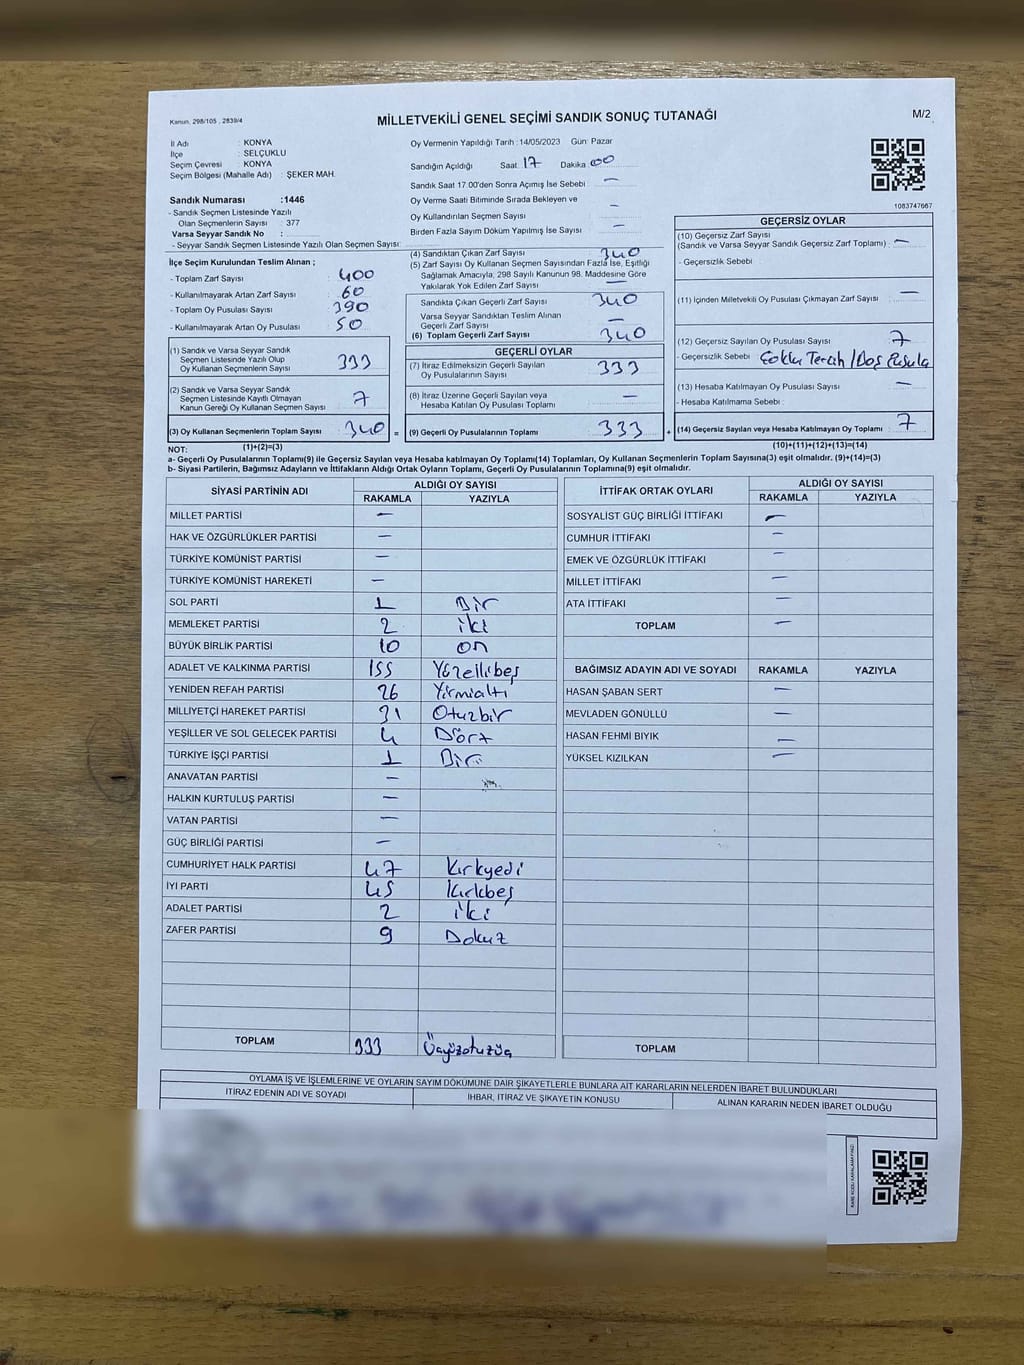 Kanun, 298/105 , 2839/4
MİLLETVEKİLİ GENEL SEÇİMİ SANDIK SONUÇ TUTANAĞI
M/2
İl Adı : KONYA
İlçe : SELÇUKLU
Seçim Çevresi : KONYA
Seçim Bölgesi (Mahalle Adı) : ŞEKER MAH.
Sandık Numarası :1446
- Sandık Seçmen Listesinde Yazılı
Olan Seçmenlerin Sayısı : 377
Varsa Seyyar Sandık No :
- Seyyar Sandık Seçmen Listesinde Yazılı Olan Seçmen Sayısı:
Oy Vermenin Yapıldığı Tarih : 14/05/2023 Gün: Pazar
Sandığın Açıldığı Saat 17 Dakika 00
Sandık Saat 17.00'den Sonra Açımış İse Sebebi : —
Oy Verme Saati Bitiminde Sırada Bekleyen ve
Oy Kullandırılan Seçmen Sayısı : —
Birden Fazla Sayım Döküm Yapılmış İse Sayısı : —
1083747667
İlçe Seçim Kurulundan Teslim Alınan ;
- Toplam Zarf Sayısı : 400
- Kullanılmayarak Artan Zarf Sayısı : 60
- Toplam Oy Pusulası Sayısı : 390
- Kullanılmayarak Artan Oy Pusulası : 50
(1) Sandık ve Varsa Seyyar Sandık
Seçmen Listesinde Yazılı Olup
Oy Kullanan Seçmenlerin Sayısı : 333
(2) Sandık ve Varsa Seyyar Sandık
Seçmen Listesinde Kayıtlı Olmayan
Kanun Gereği Oy Kullanan Seçmen Sayısı : 7
(3) Oy Kullanan Seçmenlerin Toplam Sayısı : 340
(1)+(2)=(3)
(4) Sandıktan Çıkan Zarf Sayısı : 340
(5) Zarf Sayısı Oy Kullanan Seçmen Sayısından Fazla İse, Eşitliği
Sağlamak Amacıyla, 298 Sayılı Kanunun 98. Maddesine Göre
Yakılarak Yok Edilen Zarf Sayısı : —
Sandıkta Çıkan Geçerli Zarf Sayısı : 340
Varsa Seyyar Sandıktan Teslim Alınan
Geçerli Zarf Sayısı : —
(6) Toplam Geçerli Zarf Sayısı : 340
GEÇERLİ OYLAR
(7) İtiraz Edilmeksizin Geçerli Sayılan
Oy Pusulalarının Sayısı : 333
(8) İtiraz Üzerine Geçerli Sayılan veya
Hesaba Katılan Oy Pusulası Toplamı : —
= (9) Geçerli Oy Pusulalarının Toplamı : 333 +
GEÇERSİZ OYLAR
(10) Geçersiz Zarf Sayısı
(Sandık ve Varsa Seyyar Sandık Geçersiz Zarf Toplamı) : —
- Geçersizlik Sebebi :
(11) İçinden Milletvekili Oy Pusulası Çıkmayan Zarf Sayısı : —
(12) Geçersiz Sayılan Oy Pusulası Sayısı : 7
- Geçersizlik Sebebi : Çoklu Tercih / Boş Pusula
(13) Hesaba Katılmayan Oy Pusulası Sayısı : —
- Hesaba Katılmama Sebebi :
(14) Geçersiz Sayılan veya Hesaba Katılmayan Oy Toplamı : 7
(10)+(11)+(12)+(13)=(14)
NOT:
a- Geçerli Oy Pusulalarının Toplamı(9) ile Geçersiz Sayılan veya Hesaba katılmayan Oy Toplamı(14) Toplamları, Oy Kullanan Seçmenlerin Toplam Sayısına(3) eşit olmalıdır. (9)+(14)=(3)
b- Siyasi Partilerin, Bağımsız Adayların ve İttifakların Aldığı Ortak Oyların Toplamı, Geçerli Oy Pusulalarının Toplamına(9) eşit olmalıdır.
SİYASİ PARTİNİN ADI ALDIĞI OY SAYISI
RAKAMLA YAZIYLA
MİLLET PARTİSİ —
HAK VE ÖZGÜRLÜKLER PARTİSİ —
TÜRKİYE KOMÜNİST PARTİSİ —
TÜRKİYE KOMÜNİST HAREKETİ —
SOL PARTİ 1 Bir
MEMLEKET PARTİSİ 2 iki
BÜYÜK BİRLİK PARTİSİ 10 on
ADALET VE KALKINMA PARTİSİ 155 Yüzellibeş
YENİDEN REFAH PARTİSİ 26 Yirmialtı
MİLLİYETÇİ HAREKET PARTİSİ 31 Otuzbir
YEŞİLLER VE SOL GELECEK PARTİSİ 4 Dört
TÜRKİYE İŞÇİ PARTİSİ 1 Bir
ANAVATAN PARTİSİ —
HALKIN KURTULUŞ PARTİSİ —
VATAN PARTİSİ —
GÜÇ BİRLİĞİ PARTİSİ —
CUMHURİYET HALK PARTİSİ 47 Kırkyedi
İYİ PARTİ 45 Kırkbeş
ADALET PARTİSİ 2 iki
ZAFER PARTİSİ 9 Dokuz
TOPLAM 333 Üçyüzotuzüç
İTTİFAK ORTAK OYLARI ALDIĞI OY SAYISI
RAKAMLA YAZIYLA
SOSYALİST GÜÇ BİRLİĞİ İTTİFAKI —
CUMHUR İTTİFAKI —
EMEK VE ÖZGÜRLÜK İTTİFAKI —
MİLLET İTTİFAKI —
ATA İTTİFAKI —
TOPLAM —
BAĞIMSIZ ADAYIN ADI VE SOYADI RAKAMLA YAZIYLA
HASAN ŞABAN SERT —
MEVLADEN GÖNÜLLÜ —
HASAN FEHMİ BIYIK —
YÜKSEL KIZILKAN —
TOPLAM
OYLAMA İŞ VE İŞLEMLERİNE VE OYLARIN SAYIM DÖKÜMÜNE DAİR ŞİKAYETLERLE BUNLARA AİT KARARLARIN NELERDEN İBARET BULUNDUKLARI
İTİRAZ EDENİN ADI VE SOYADI İHBAR, İTİRAZ VE ŞİKAYETİN KONUSU ALINAN KARARIN NEDEN İBARET OLDUĞU